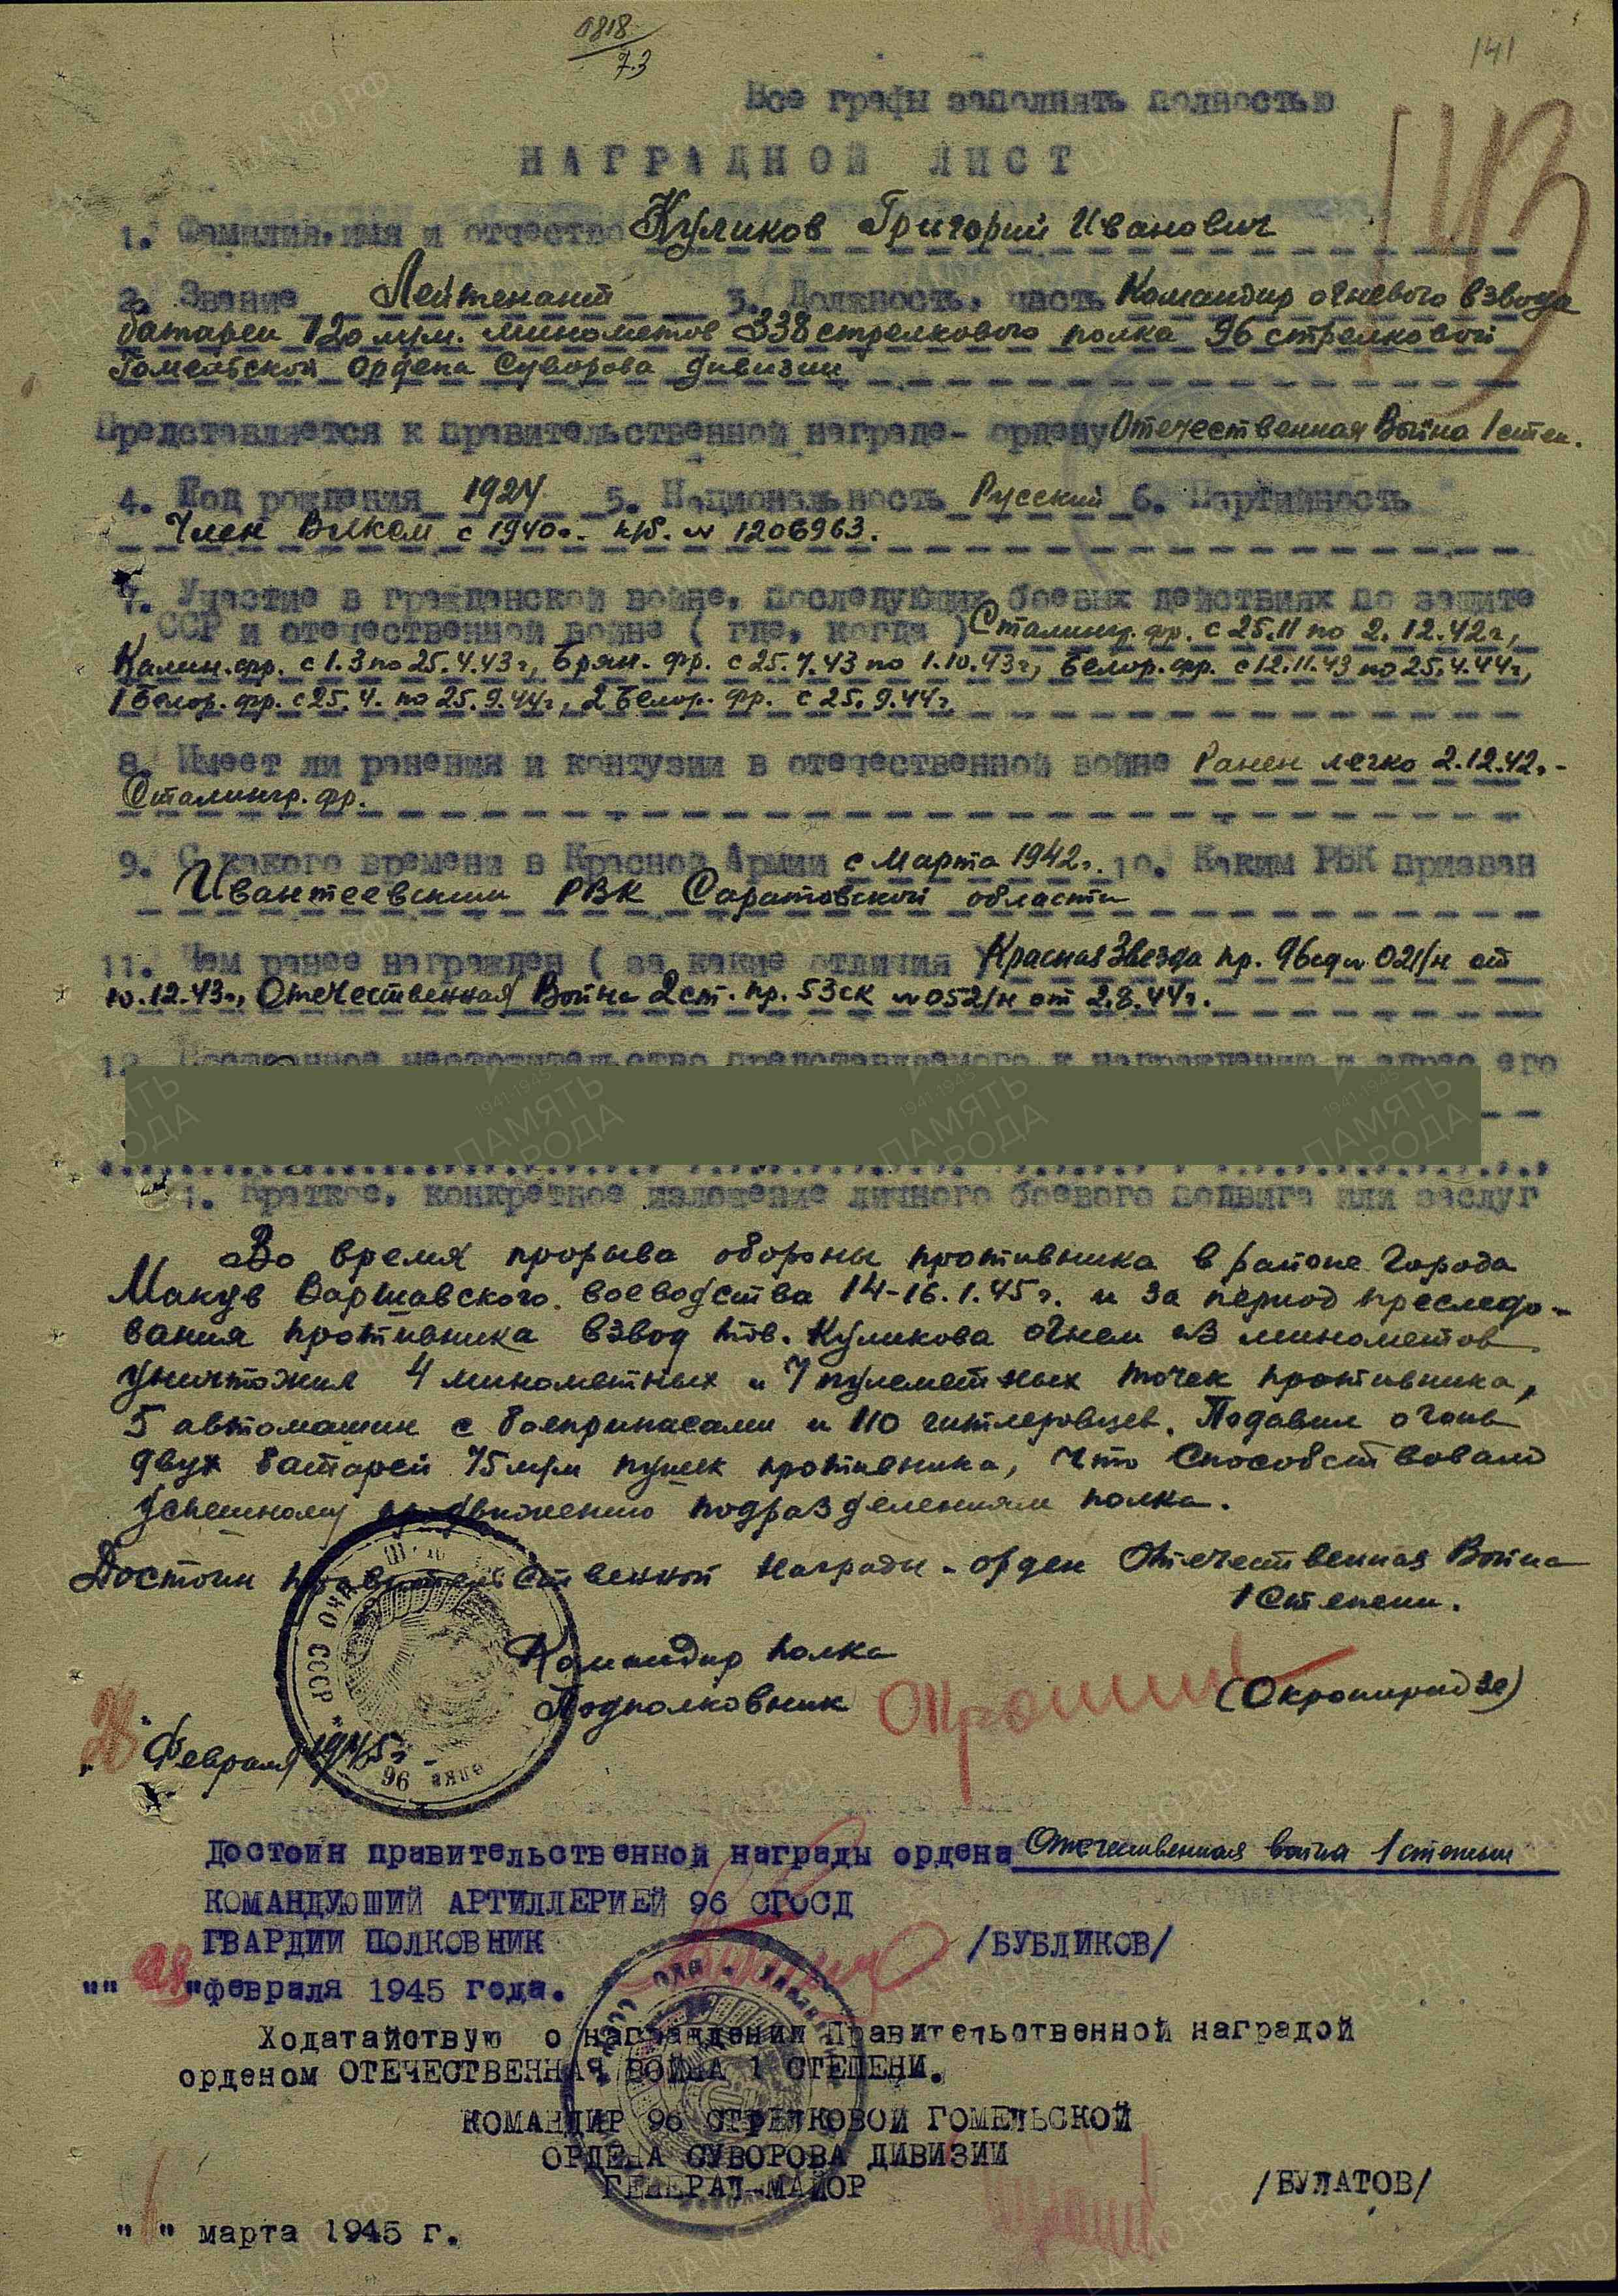 1818
73
141
Все графы заполнять полностью
143
НАГРАДНОЙ ЛИСТ
1. Фамилия, имя и отчество Куликов Григорий Иванович
2. Звание Лейтенант 3. Должность, часть Командир огневого взвода
батареи 120 м/м. минометов 338 стрелкового полка 96 стрелковой
Гомельской Ордена Суворова дивизии
Представляется к правительственной награде- ордену Отечественная Война 1 степ.
4. Год рождения 1924 5. Национальность Русский 6. Партийность
Член Влксм с 1940г. к/б. № 1206963.
7. Участие в гражданской войне, последующих боевых действиях по защите
СССР и отечественной войне ( где, когда ) Сталингр. фр. с 25.11 по 2.12.42г,
Калин. фр. с 1.3 по 25.4.43г, Брян. фр. с 25.7.43 по 1.10.43г, Белор. фр. с 12.11.43 по 25.4.44г,
1 Белор. фр. с 25.4. по 25.9.44г, 2 Белор. фр. с 25.9.44г
8. Имеет ли ранения и контузии в отечественной войне Ранен легко 2.12.42.-
Сталингр. фр.
9. С какого времени в Красной Армии с Марта 1942г. 10. Каким РВК призван
Ивантеевским РВК Саратовской области
11. Чем ранее награжден ( за какие отличия ) Красная Звезда пр. 96сд № 021/н от
10.12.43г., Отечественная Война 2 ст. пр. 53ск № 052/н от 2.8.44г.
12. Постоянное местожительство представляемого к награждению и адрес его
1. Краткое, конкретное изложение личного боевого подвига или заслуг
Во время прорыва обороны противника в районе города
Макув Варшавского воеводства 14-16.1.45г. и за период преследо-
вания противника взвод тов. Куликова огнем из минометов
уничтожил 4 минометных и 7 пулеметных точек противника,
5 автомашин с боеприпасами и 110 гитлеровцев. Подавил огонь
двух батарей 75 м/м пушек противника, что способствовало
успешному продвижению подразделениям полка.
Достоин правительственной награды - орден Отечественная Война
1 степени.
Командир полка
Подполковник (Окропиридзе)
"28" Февраля 1945г.
СССР
96
Достоин правительственной награды ордена Отечественная война 1 степени
КОМАНДУЮЩИЙ АРТИЛЛЕРИЕЙ 96 СГОСД
ГВАРДИИ ПОЛКОВНИК /БУБЛИКОВ/
"" 28 "февраля 1945 года.
Ходатайствую о награждении Правительственной наградой
орденом ОТЕЧЕСТВЕННАЯ ВОЙНА 1 СТЕПЕНИ.
КОМАНДИР 96 СТРЕЛКОВОЙ ГОМЕЛЬСКОЙ
ОРДЕНА СУВОРОВА ДИВИЗИИ
ГЕНЕРАЛ-МАЙОР /БУЛАТОВ/
"1" марта 1945 г.